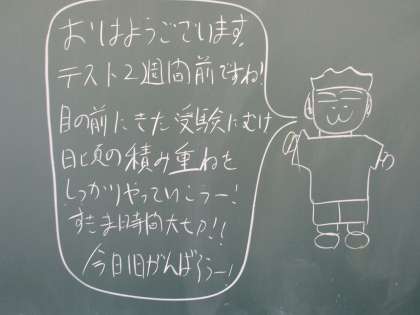 おはようございます。
テスト2週間前ですね!
目の前にきた受験にむけ
日頃の積み重ねを
しっかりやっていこうー!
すきま時間大セカ!!
今日1日がんばろうー!